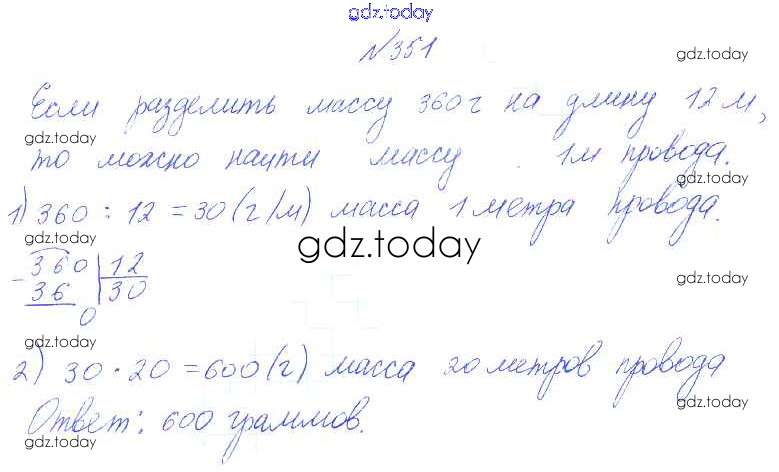 gdz.today
№351
gdz.today
Если разделить массу 360 г на длину 12 м,
gdz.today
то можно найти массу 1м провода.
gdz.today
1) 360 : 12 = 30 (г/м) масса 1 метра провода.
gdz.today
360 12
- 36 30
0
gdz.today
gdz.today
2) 30 · 20 = 600 (г) масса 20 метров провода
gdz.today
Ответ: 600 граммов.
gdz.today